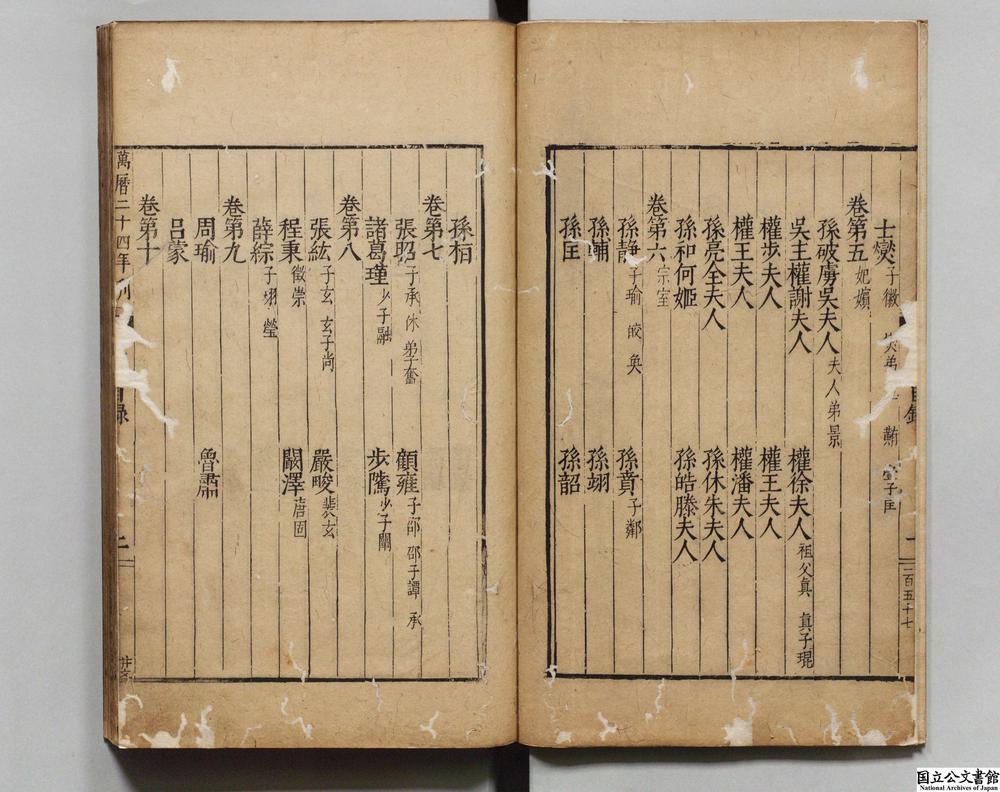 士燮 子徽
卷第五 妃嬪
孫破虜吳夫人 夫人弟景
吳主權謝夫人 權徐夫人 祖父真 真子琨
權步夫人 權王夫人
權王夫人 權潘夫人
孫亮全夫人 孫休朱夫人
孫和何姬 孫皓滕夫人
卷第六 宗室
孫靜 子瑜 皎 奐 孫賁 子鄰
孫輔 孫翊
孫匡 孫韶
一百五十七
孫桓
卷第七
張昭 子承 休 弟子奮 顧雍 子邵 邵子譚 承
諸葛瑾 少子融 步騭 少子闡
卷第八
張紘 子玄 玄子尚 嚴畯 裴玄
程秉 徵崇 闞澤 唐固
薛綜 子珝 瑩
卷第九
周瑜 魯肅
呂蒙
卷第十
萬曆二十四年刊
目録 二
国立公文書館
National Archives of Japan